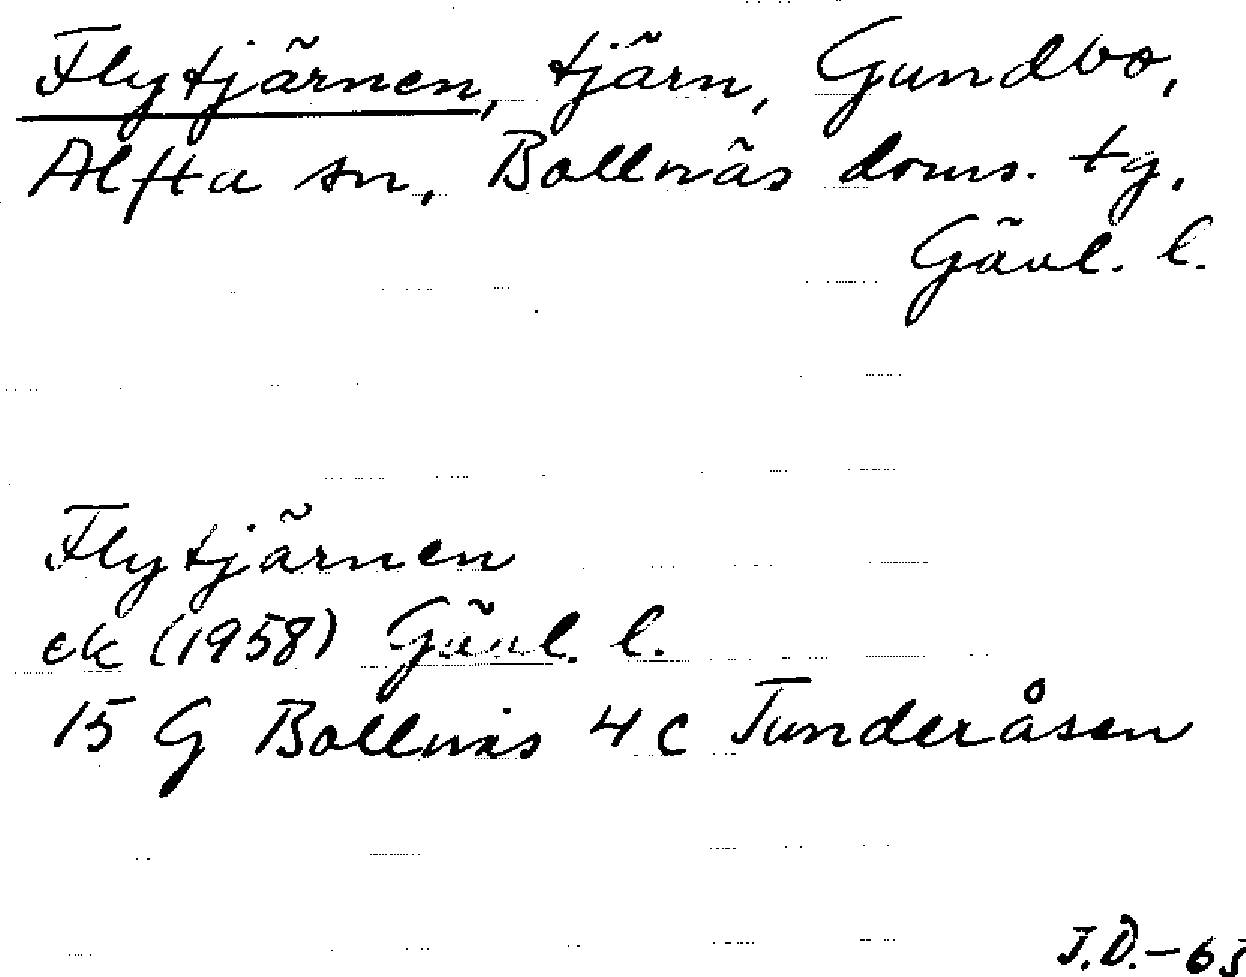 Flytjärnen, tjärn, Gundbo,
Alfta sn, Bollnäs doms. tg,
Gävl. l.
Flytjärnen
ek (1958) Gävl. l.
15 G Bollnäs 4 c Tunderåsen
J.D.-65